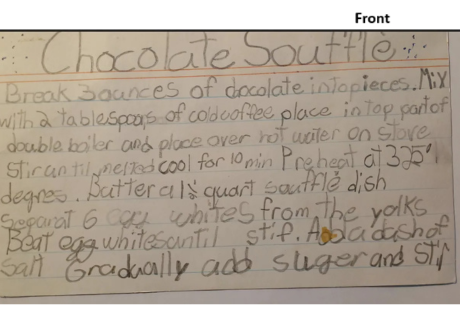 Front
Chocolate Souffle
Break 3 ounces of docolate into pieces. Mix
with 2 tablespoons of cold coffee place in top part of
double boiler and place over hot water on stove
stir until melted cool for 10 min Preheat at 325°
degres. Butter a 1½ quart souffle dish
Seperat 6 egg whites from the yolks
Beat egg whites until stif. Add a dash of
salt Gradually add suger and stir